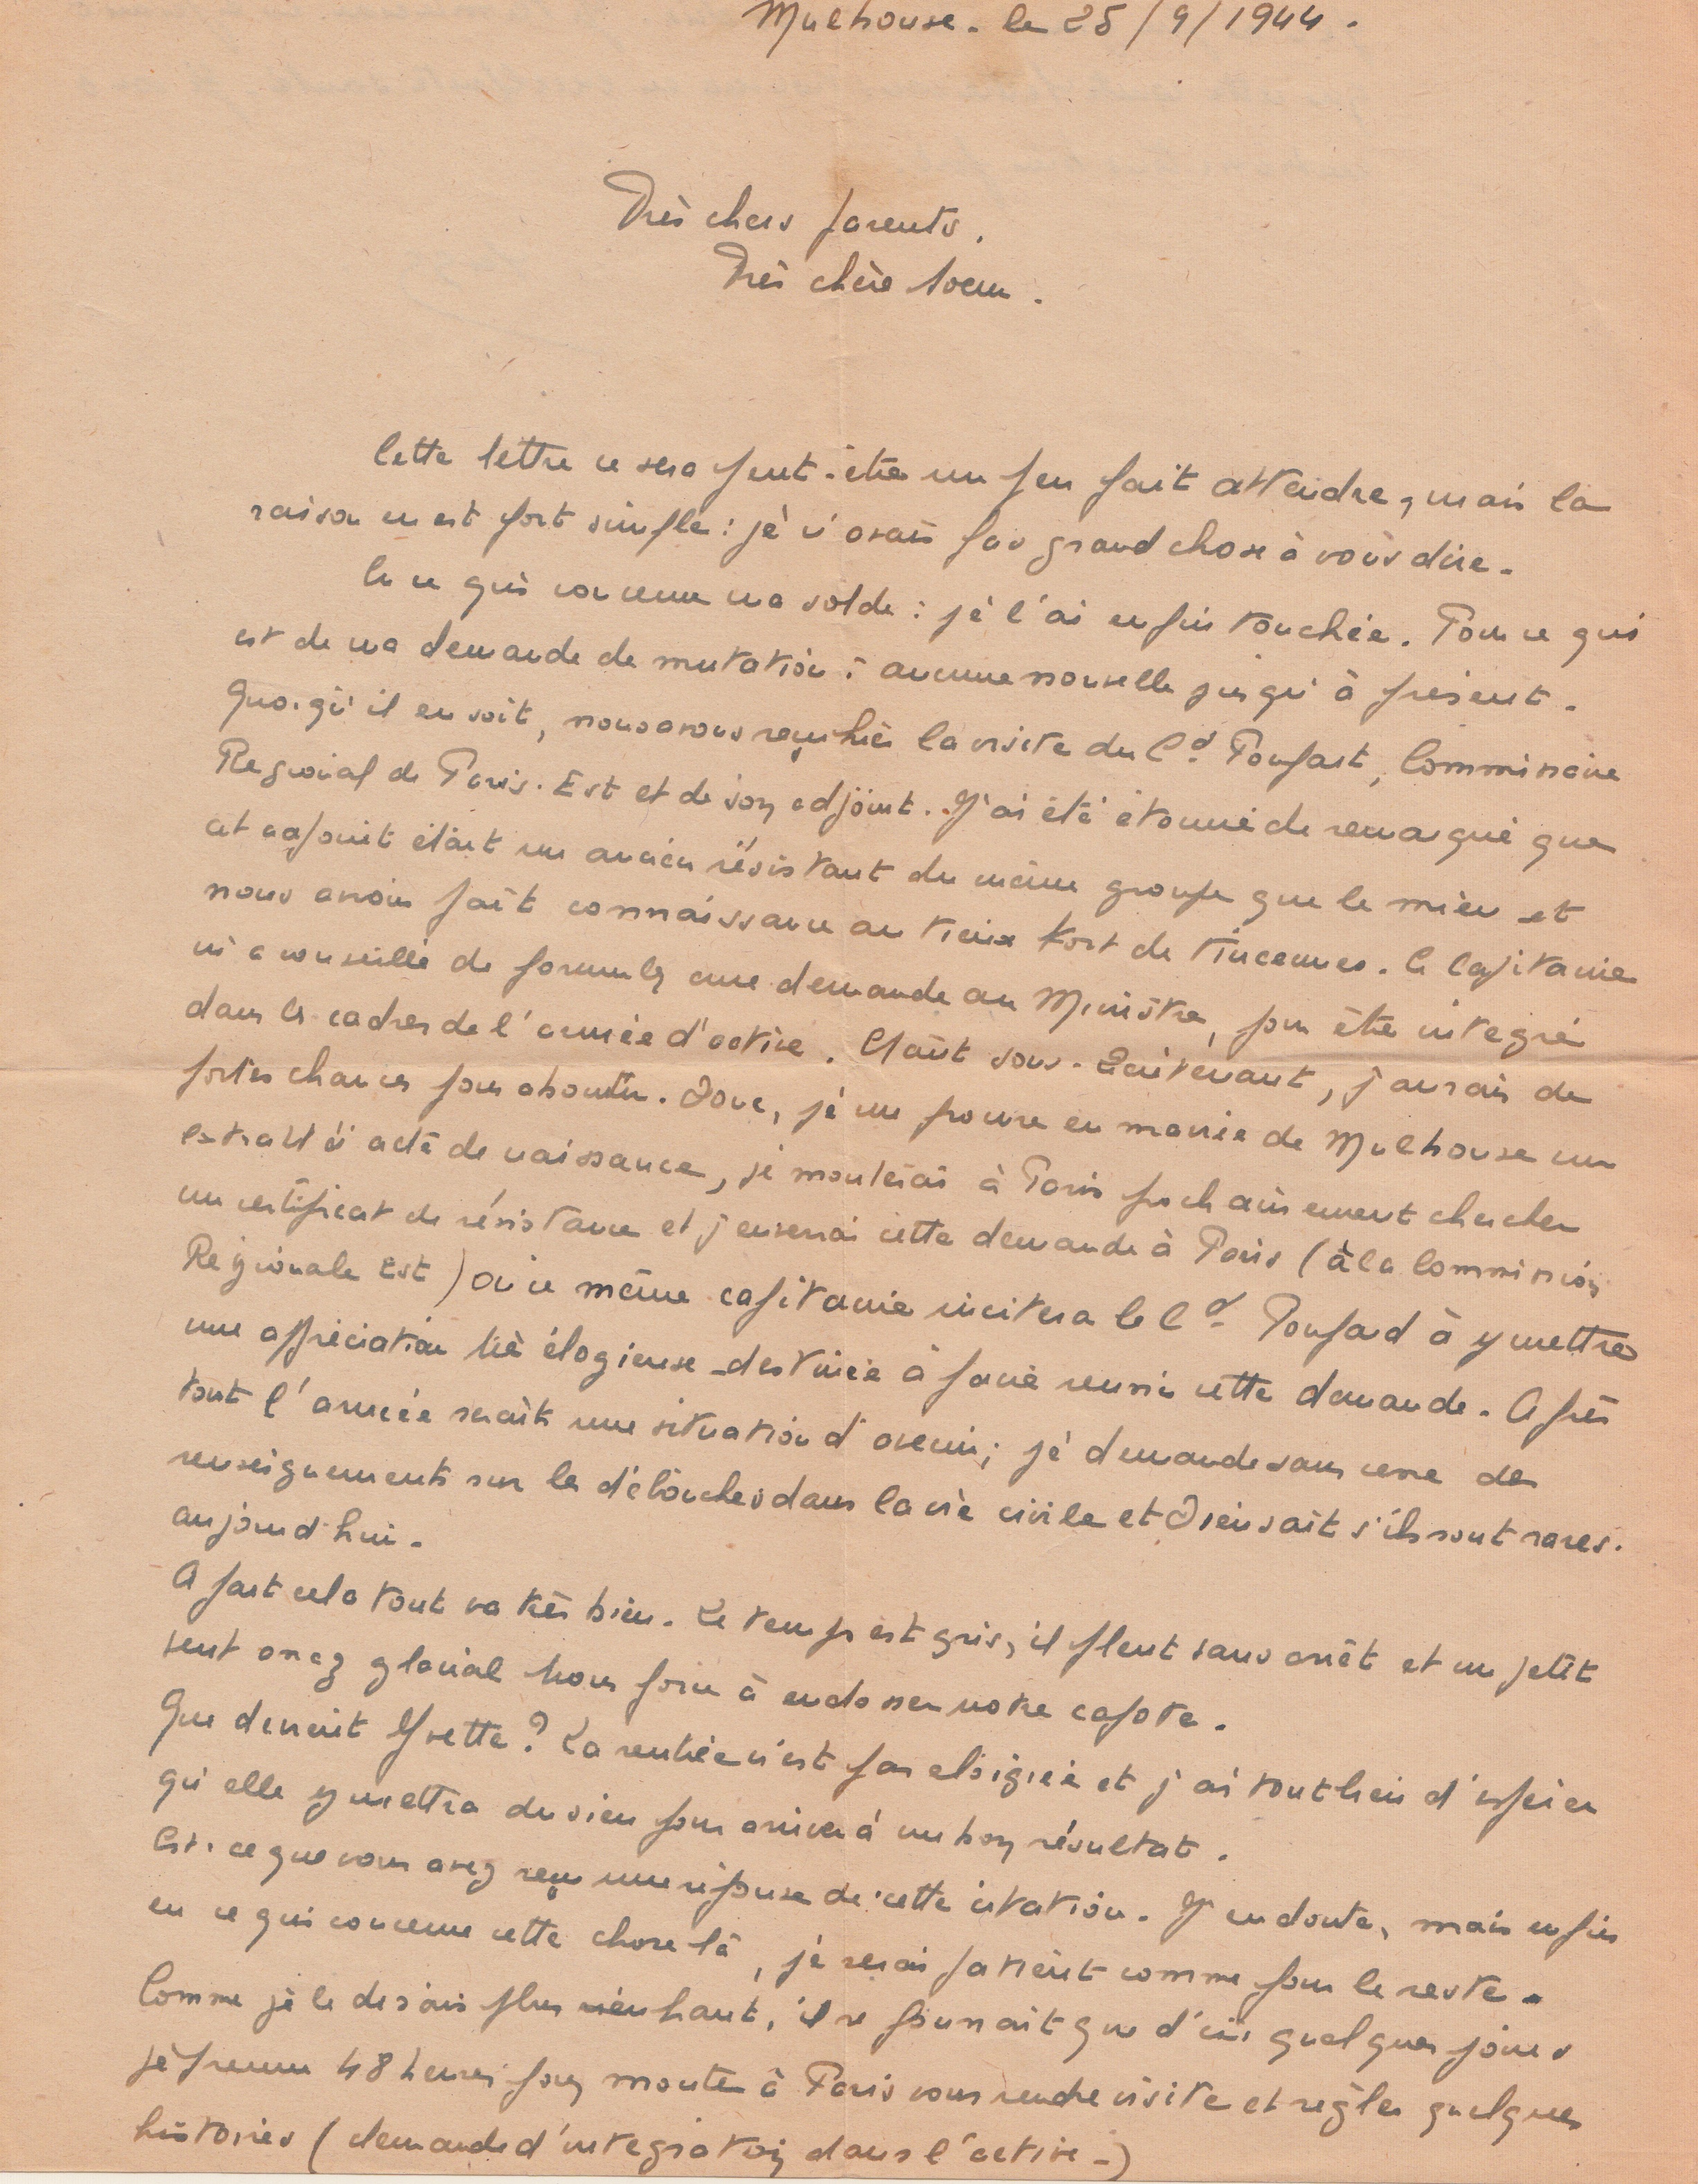 Mulhouse. le 25/9/1944.
Très chers parents.
Très chère soeur.
Cette lettre ce sera peut-être un peu fait attendre, mais la
raison en est fort simple : je n'avais pas grand chose à vous dire.
En ce qui concerne ma solde : je l'ai enfin touchée. Pour ce qui
est de ma demande de mutation : aucune nouvelle jusqu'à présent.
Quoiqu'il en soit, nous avons reçu hier la visite du Cd. Commissaire
Regional de Paris. Est et de son adjoint. J'ai été étonné de remarqué que
cet adjoint était un ancien résistant du même groupe que le mien et
nous avions fait connaissance au vieux Fort de Vincennes. Ce Capitaine
m'a conseillé de formuler une demande au Ministre, pour être integré
dans les cadres de l'armée d'active. Etant sous-Lieutenant, j'aurais de
fortes chances pour aboutir. Donc, je me procure en mairie de Mulhouse un
extrait d'acte de naissance, je monterai à Paris prochainement chercher
un certificat de résistance et j'enverrai cette demande à Paris (à la Commission
Regionale Est) où ce même capitaine incitera le Cd. à y mettre
une appréciation très élogieuse destinée à faire reussir cette demande. Après
tout l'armée serait une situation d'avenir; je demande sans cesse des
renseignements sur les débouchés dans la vie civile et Dieu sait s'ils sont rares.
aujourd'hui.
A part cela tout va très bien. Le temps est gris, il pleut sans arrêt et un petit
vent assez glacial nous force à endosser notre capote.
Que devient Yvette? La rentrée n'est pas eloignée et j'ai tout lieu d'espérer
qu'elle y mettra du sien pour arriver à un bon résultat.
Est-ce que vous avez reçu une réponse de cette citation. J'en doute, mais enfin
en ce qui concerne cette chose là, je serai patient comme pour le reste.
Comme je le disais plus haut, il se pourrait que d'ici quelques jours
je prenne 48 heures pour monter à Paris vous rendre visite et régler quelques
histoires (demande d'integration dans l'active-)